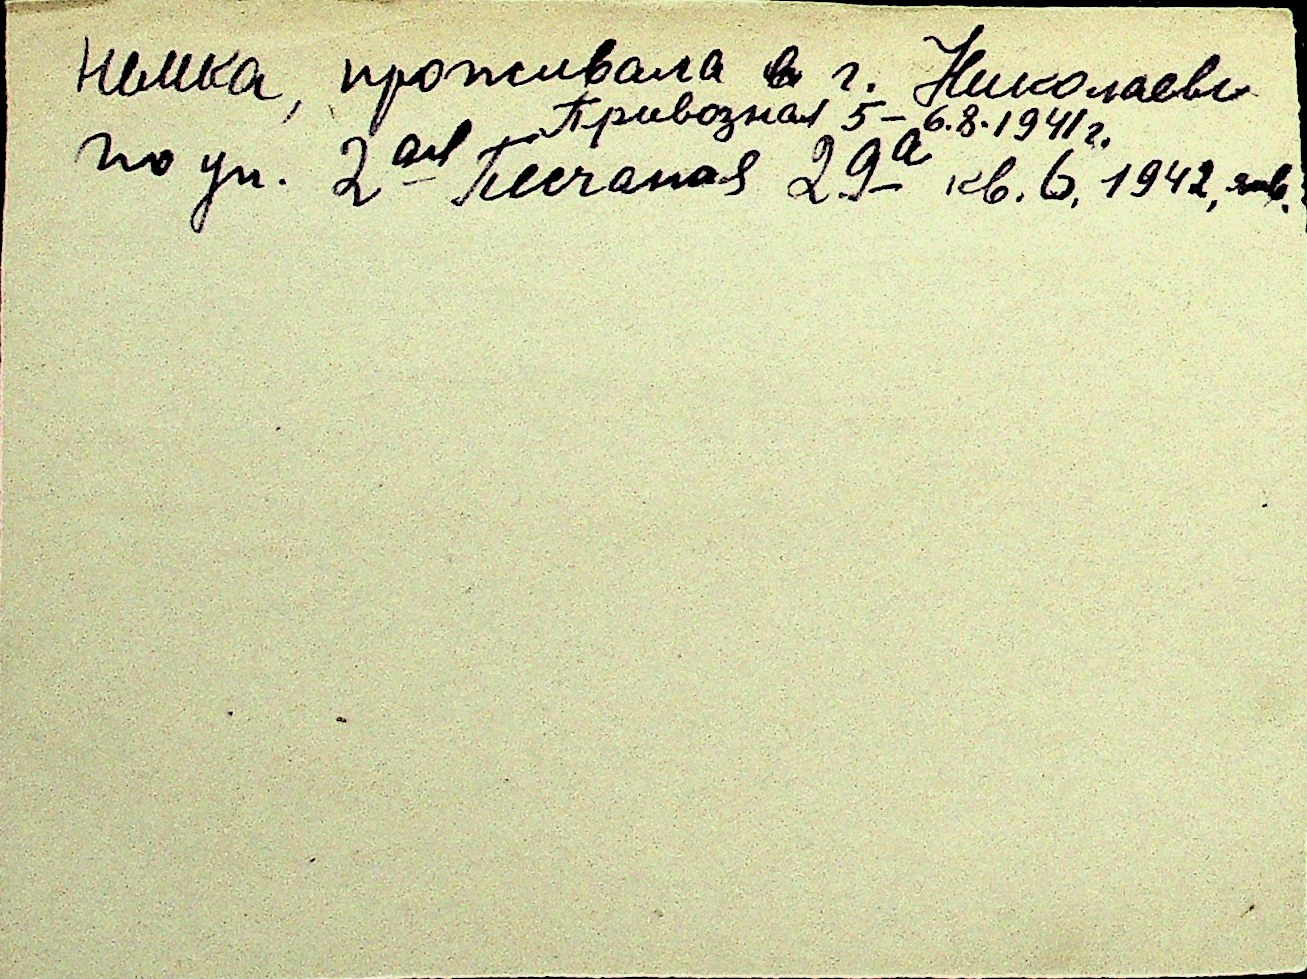 немка, проживала в г. Николаеве
Привозная 5 – 6.8.1941 г.
по ул. 2ая Песчаная 29а кв. 6, 1942, янв.